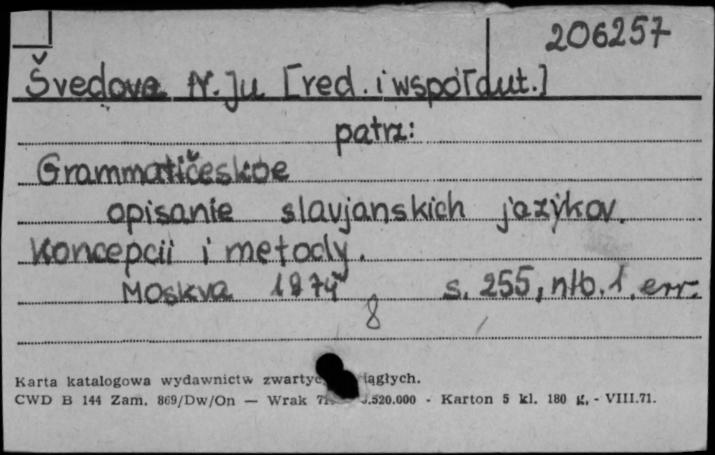 206257
Švedova N. Ju [red. i wspołdut.]
patrz:
Grammatičeskoe
opisanie slavjanskich jazykov.
Koncepcii i metody.
Moskva 1974 s. 255, nlb. 1, err.
8
Karta katalogowa wydawnictw zwartyc iągłych.
CWD B 144 Zam. 869/Dw/On — Wrak .520.000 - Karton 5 kl. 180 g, - VIII.71.